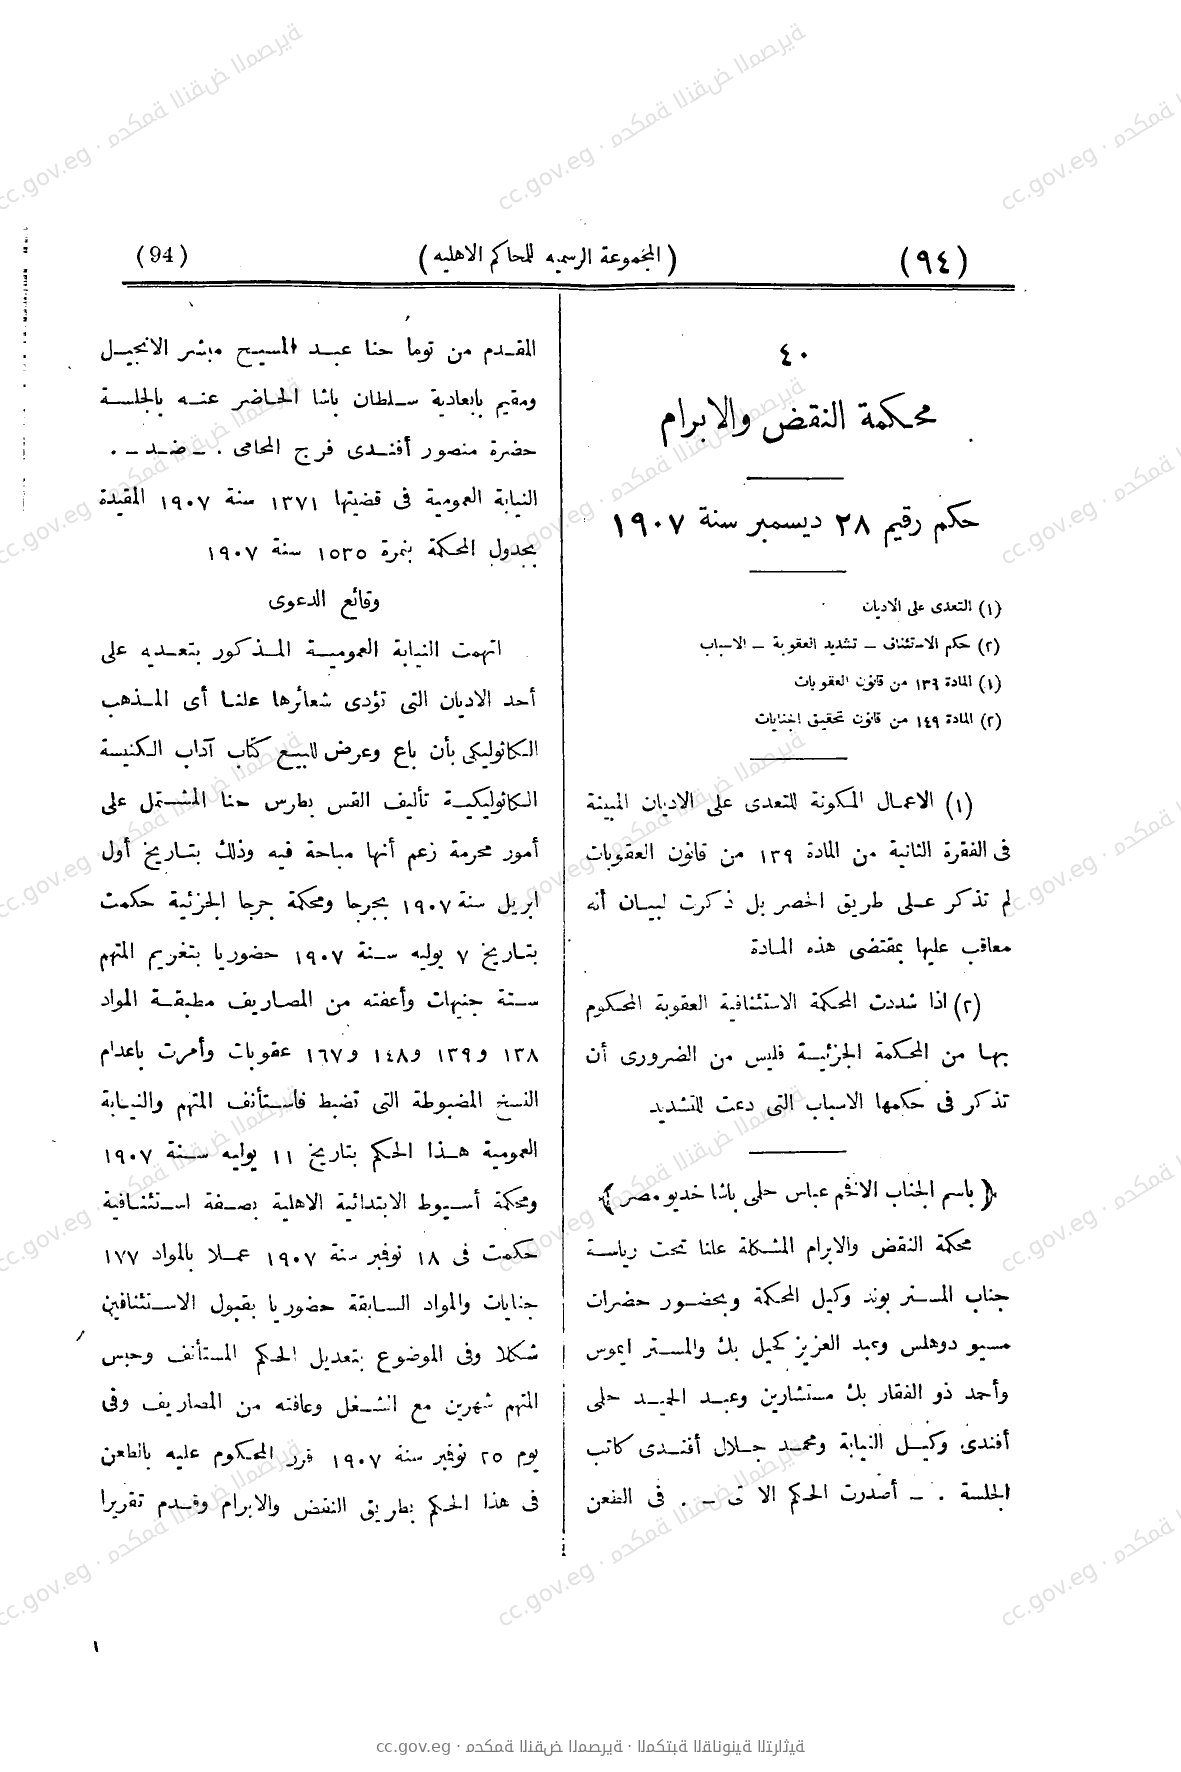 (٩٤)
( المجموعة الرسميه للمحاكم الاهليه )
(94)
٤٠
محكمة النقض والابرام
حكم رقيم ٢٨ ديسمبر سنة ١٩٠٧
(١) التعدى على الاديان
(٢) حكم الاستئناف – تشديد العقوبة – الاسباب
(١) المادة ١٣٩ من قانون العقوبات
(٢) المادة ١٤٩ من قانون تحقيق الجنايات
(١) الاعمال المكونة للتعدى على الاديان المبينة
فى الفقرة الثانية من المادة ١٣٩ من قانون العقوبات
لم تذكر على طريق الحصر بل ذكرت لبيان أنه
معاقب عليها بمقتضى هذه المادة
(٢) اذا شددت المحكمة الاستئنافية العقوبة المحكوم
بها من المحكمة الجزئية فليس من الضرورى أن
تذكر فى حكمها الاسباب التى دعت للتشديد
﴿ باسم الجناب الافخم عباس حلمى باشا خديو مصر ﴾
محكمة النقض والابرام المشكلة علنا تحت رياسة
جناب المستر بوند وكيل المحكمة وبحضور حضرات
مسيو دوهلس وعبد العزيز كحيل بك والمستر ايموس
وأحمد ذو الفقار بك مستشارين وعبد الحميد حلمى
أفندى وكيل النيابة ومحمد جلال أفندى كاتب
الجلسة . – أصدرت الحكم الا تى – . فى الطعن
المقدم من توما حنا عبد المسيح مبشر الانجيل
ومقيم بابعادية سلطان باشا الحاضر عنه بالجلسة
حضرة منصور أفندى فرج المحامى . – ضد – .
النيابة العمومية فى قضيتها ١٣٧١ سنة ١٩٠٧ المقيدة
بجدول المحكمة بنمرة ١٥٣٥ سنة ١٩٠٧
وقائع الدعوى
اتهمت النيابة العمومية المذكور بتعديه على
أحد الاديان التى تؤدى شعائرها علنا أى المذهب
الكاثوليكى بأن باع وعرض للبيع كتاب آداب الكنيسة
الكاثوليكية تأليف القس بطارس حنا المشتمل على
أمور محرمة زعم أنها مباحة فيه وذلك بتاريخ أول
ابريل سنة ١٩٠٧ بجرجا ومحكمة جرجا الجزئية حكمت
بتاريخ ٧ يوليه سنة ١٩٠٧ حضوريا بتغريم المتهم
ستة جنيهات وأعفته من المصاريف مطبقة المواد
١٣٨ و١٣٩ و١٤٨ و١٦٧ عقوبات وأمرت باعدام
النسخ المضبوطة التى تضبط فاستأنف المتهم والنيابة
العمومية هذا الحكم بتاريخ ١١ يوليه سنة ١٩٠٧
ومحكمة أسيوط الابتدائية الاهلية بصفة استئنافية
حكمت فى ١٨ نوفمبر سنة ١٩٠٧ عملا بالمواد ١٧٧
جنايات والمواد السابقة حضوريا بقبول الاستئنافين
شكلا وفى الموضوع بتعديل الحكم المستأنف وحبس
المتهم شهرين مع الشغل وعافته من المصاريف وفى
يوم ٢٥ نوفمبر سنة ١٩٠٧ قرر المحكوم عليه بالطعن
فى هذا الحكم بطريق النقض والابرام وقدم تقريرا
١
cc.gov.eg · محكمة النقض المصرية · المكتبة القانونية التراثية